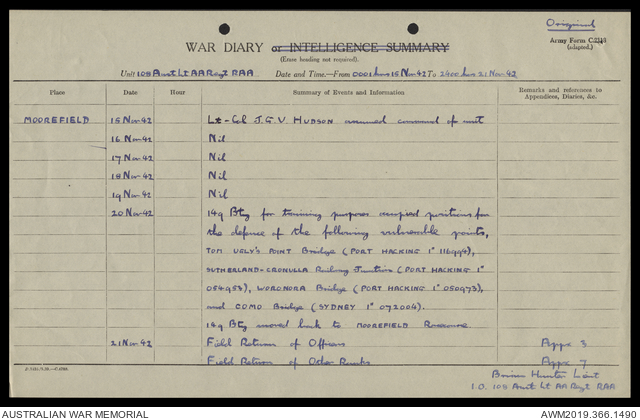 Original
WAR DIARY or INTELLIGENCE SUMMARY
Army Form C.2118
(adapted.)
(Erase heading not required).
Unit 108 Aust Lt AA Regt RAA Date and Time.—From 0001 hrs 15 Nov 42 To 2400 hrs 21 Nov 42
Place Date Hour Summary of Events and Information Remarks and references to Appendices, Diaries, &c.
MOOREFIELD 15 Nov 42 Lt-Col J.G.V. HUDSON assumed command of unit
16 Nov 42 Nil
17 Nov 42 Nil
18 Nov 42 Nil
19 Nov 42 Nil
20 Nov 42 149 Bty for training purposes occupied positions for
the defence of the following vulnerable points,
TOM UGLY'S POINT Bridge (PORT HACKING 1" 116994),
SUTHERLAND-CRONULLA Railway Junction (PORT HACKING 1"
054958), WORONORA Bridge (PORT HACKING 1" 050973),
and COMO Bridge (SYDNEY 1" 072004).
149 Bty moved back to MOOREFIELD Racecourse
21 Nov 42 Field Return of Officers Appx 3
Field Return of Other Ranks Appx 7
Hunter Lieut
I.O. 108 Aust Lt AA Regt RAA
AUSTRALIAN WAR MEMORIAL AWM2019.366.1490